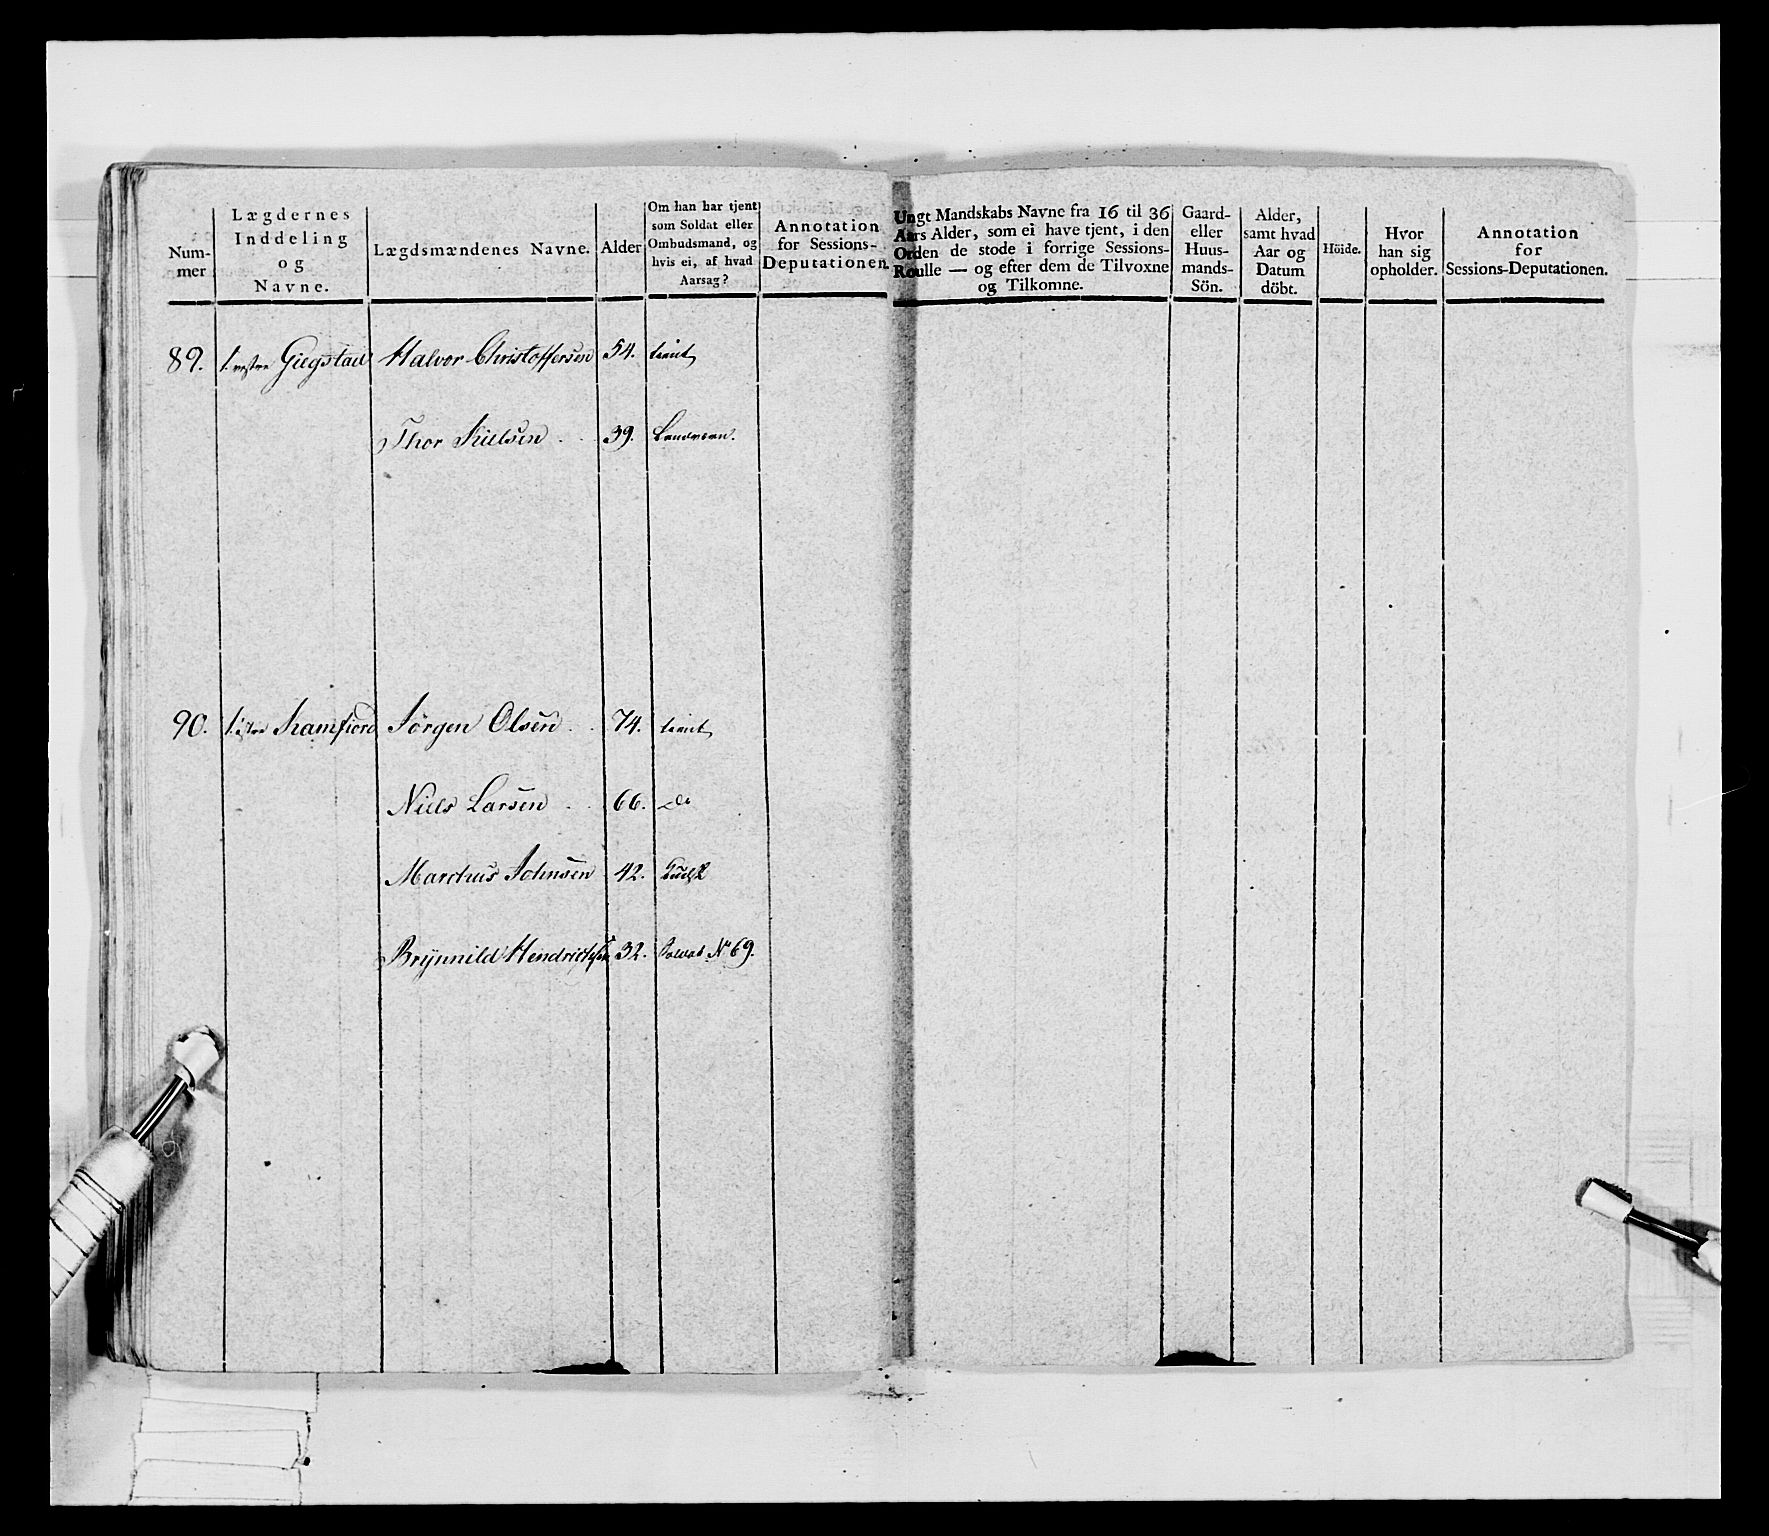 Num-
mer
Lægdernes
Inddeling
og
Navne.
Lægdsmændenes Navne.
Alder
Om han har tjent
som Soldat eller
Ombudsmand, og
hvis ei, af hvad
Aarsag?
Annotation
for Sessions-
Deputationen.
Ungt Mandskabs Navne fra 16 til 36
Aars Alder, som ei have tjent, i den
Orden de stode i forrige Sessions-
Roulle — og efter dem de Tilvoxne
og Tilkomne.
Gaard-
eller
Huus-
mands-
Sön.
Alder,
samt hvad
Aar og
Datum
döbt.
Höide.
Hvor
han sig
opholder.
Annotation
for
Sessions-Deputationen.
89. 1. vestre Giegstad Halvor Christoffersen 54. tient
Thor Nielsen 39. Landværn.
90. 1. østre Kamfiord Jörgen Olsen 74. tient
Niels Larsen 66. Do
Marchus Johnsen 42.
Brynnild Hendrichsen 32. Soldat No 69.